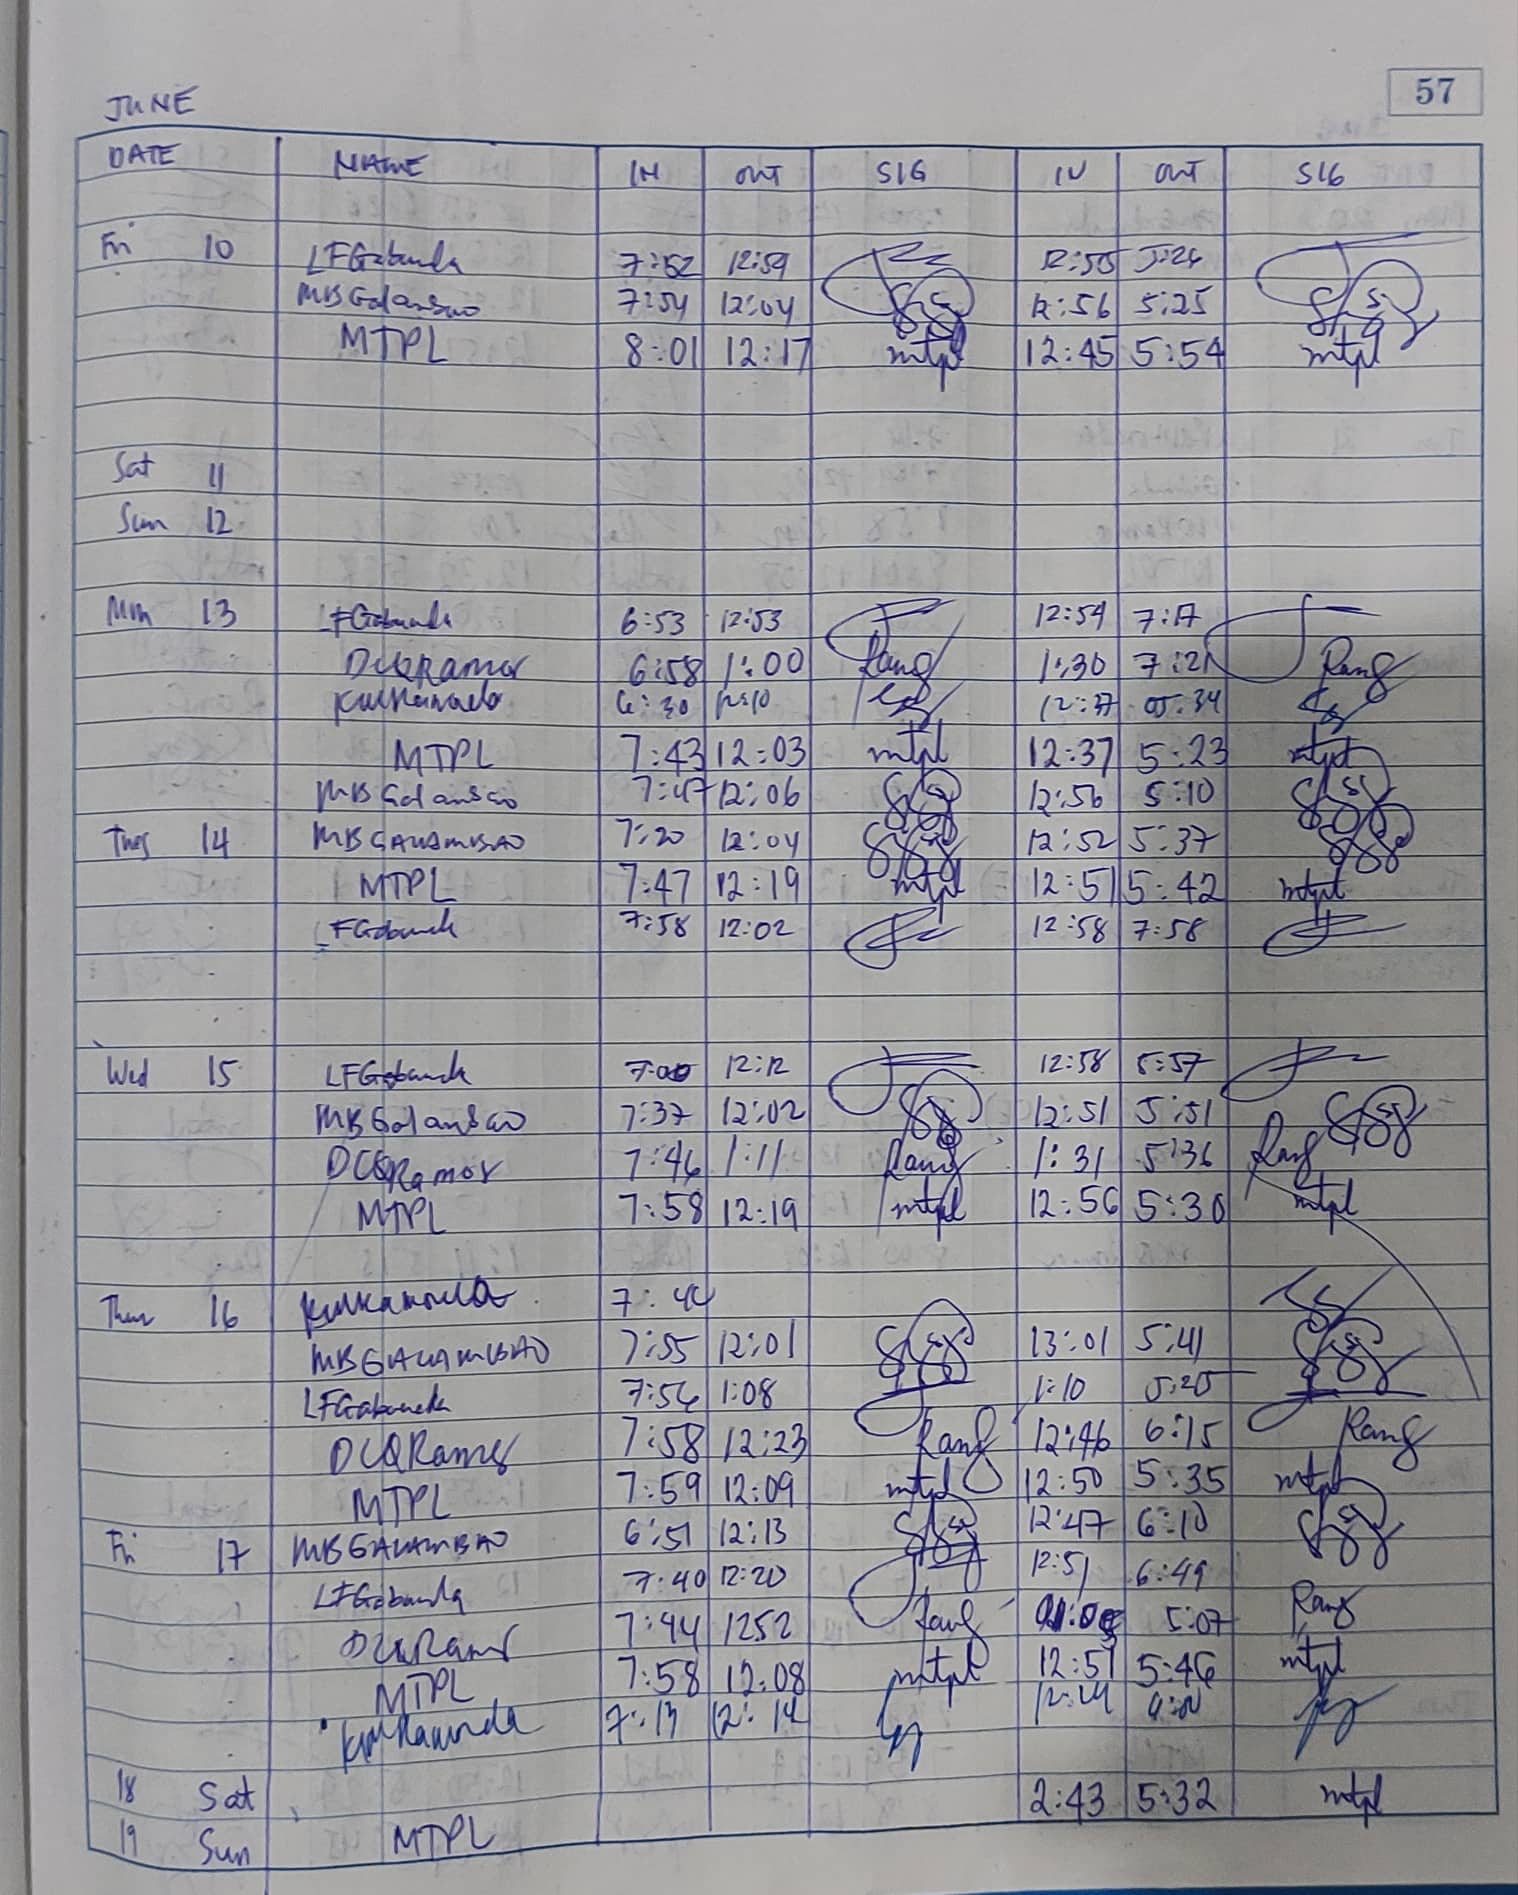 57
JUNE
DATE NAME IN OUT SIG IN OUT SIG
Fri 10 LFGabunda 7:52 12:59 12:55 5:24
MBGalansao 7:54 12:04 12:56 5:25
MTPL 8:01 12:17 mtpl 12:45 5:54 mtpl
Sat 11
Sun 12
Mon 13 LFGabunda 6:53 12:53 12:54 7:17
DCQRamos 6:58 1:00 Rang 1:30 7:21 Rang
6:30 12:10 12:37 05:34
MTPL 7:43 12:03 mtpl 12:37 5:23 mtpl
MBGalansao 7:47 12:06 12:56 5:10
Tues 14 MBGALAMBAO 7:20 12:04 12:52 5:37
MTPL 7:47 12:19 mtpl 12:51 5:42 mtpl
LFGabunda 7:58 12:02 12:58 7:58
Wed 15 LFGabunda 7:00 12:12 12:58 5:57
MBGalansao 7:37 12:02 12:51 5:51
DCQRamos 7:46 1:11 Rang 1:31 5:36 Rang
MTPL 7:58 12:19 mtpl 12:56 5:30 mtpl
Thur 16 7:44
MBGALAMBAO 7:55 12:01 13:01 5:41
LFGabunda 7:56 1:08 1:10 5:25
DCQRamos 7:58 12:23 Rang 12:46 6:15 Rang
MTPL 7:59 12:09 mtpl 12:50 5:35 mtpl
Fri 17 MBGALAMBAO 6:51 12:13 12:47 6:10
LFGabunda 7:40 12:20 12:51 6:49
DCQRamos 7:44 1252 Rang 5:07 Rang
MTPL 7:58 12:08 mtpl 12:51 5:46 mtpl
7:13 12:14
18 Sat 2:43 5:32 mtpl
19 Sun MTPL